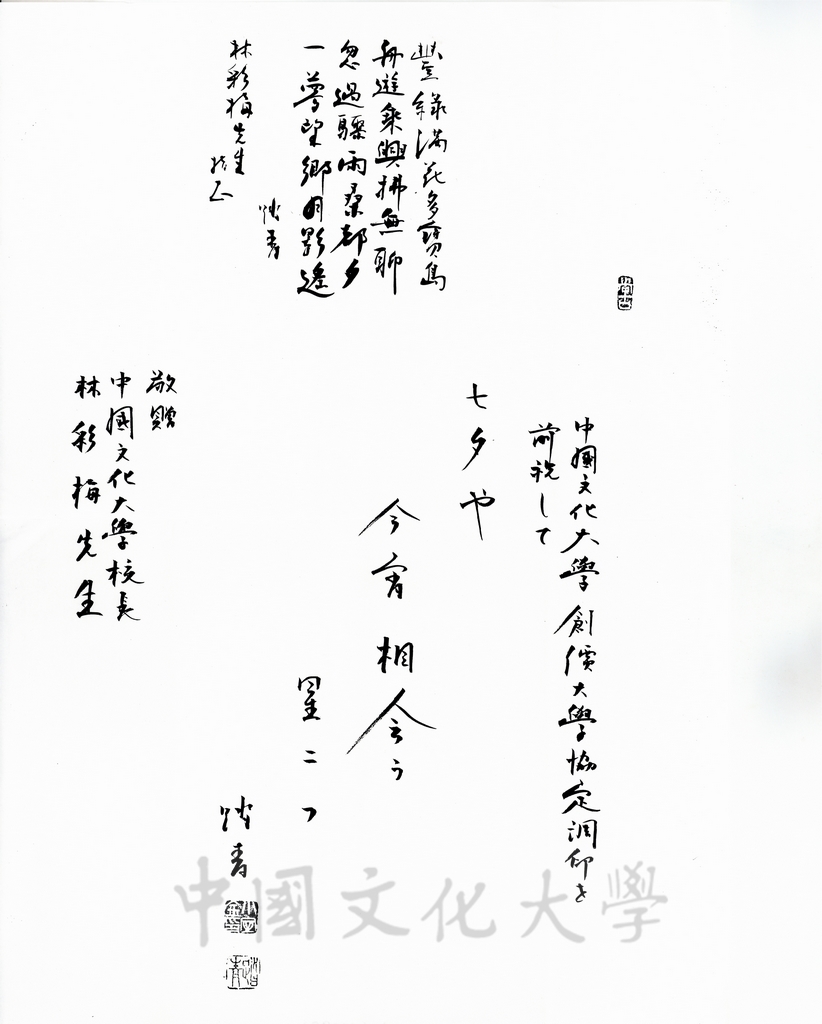 豐緑満花多寶島
舟遊乗興拂無聊
忽過驟雨桑邨夕
一夢望鄉月影遙
踏青
林彩梅先生
中國文化大學 創價大學協定調印を
前祝して
七夕や
今宵相会う
星二つ
踏青
敬贈
中國文化大學校長
林彩梅先生
中國文化大學